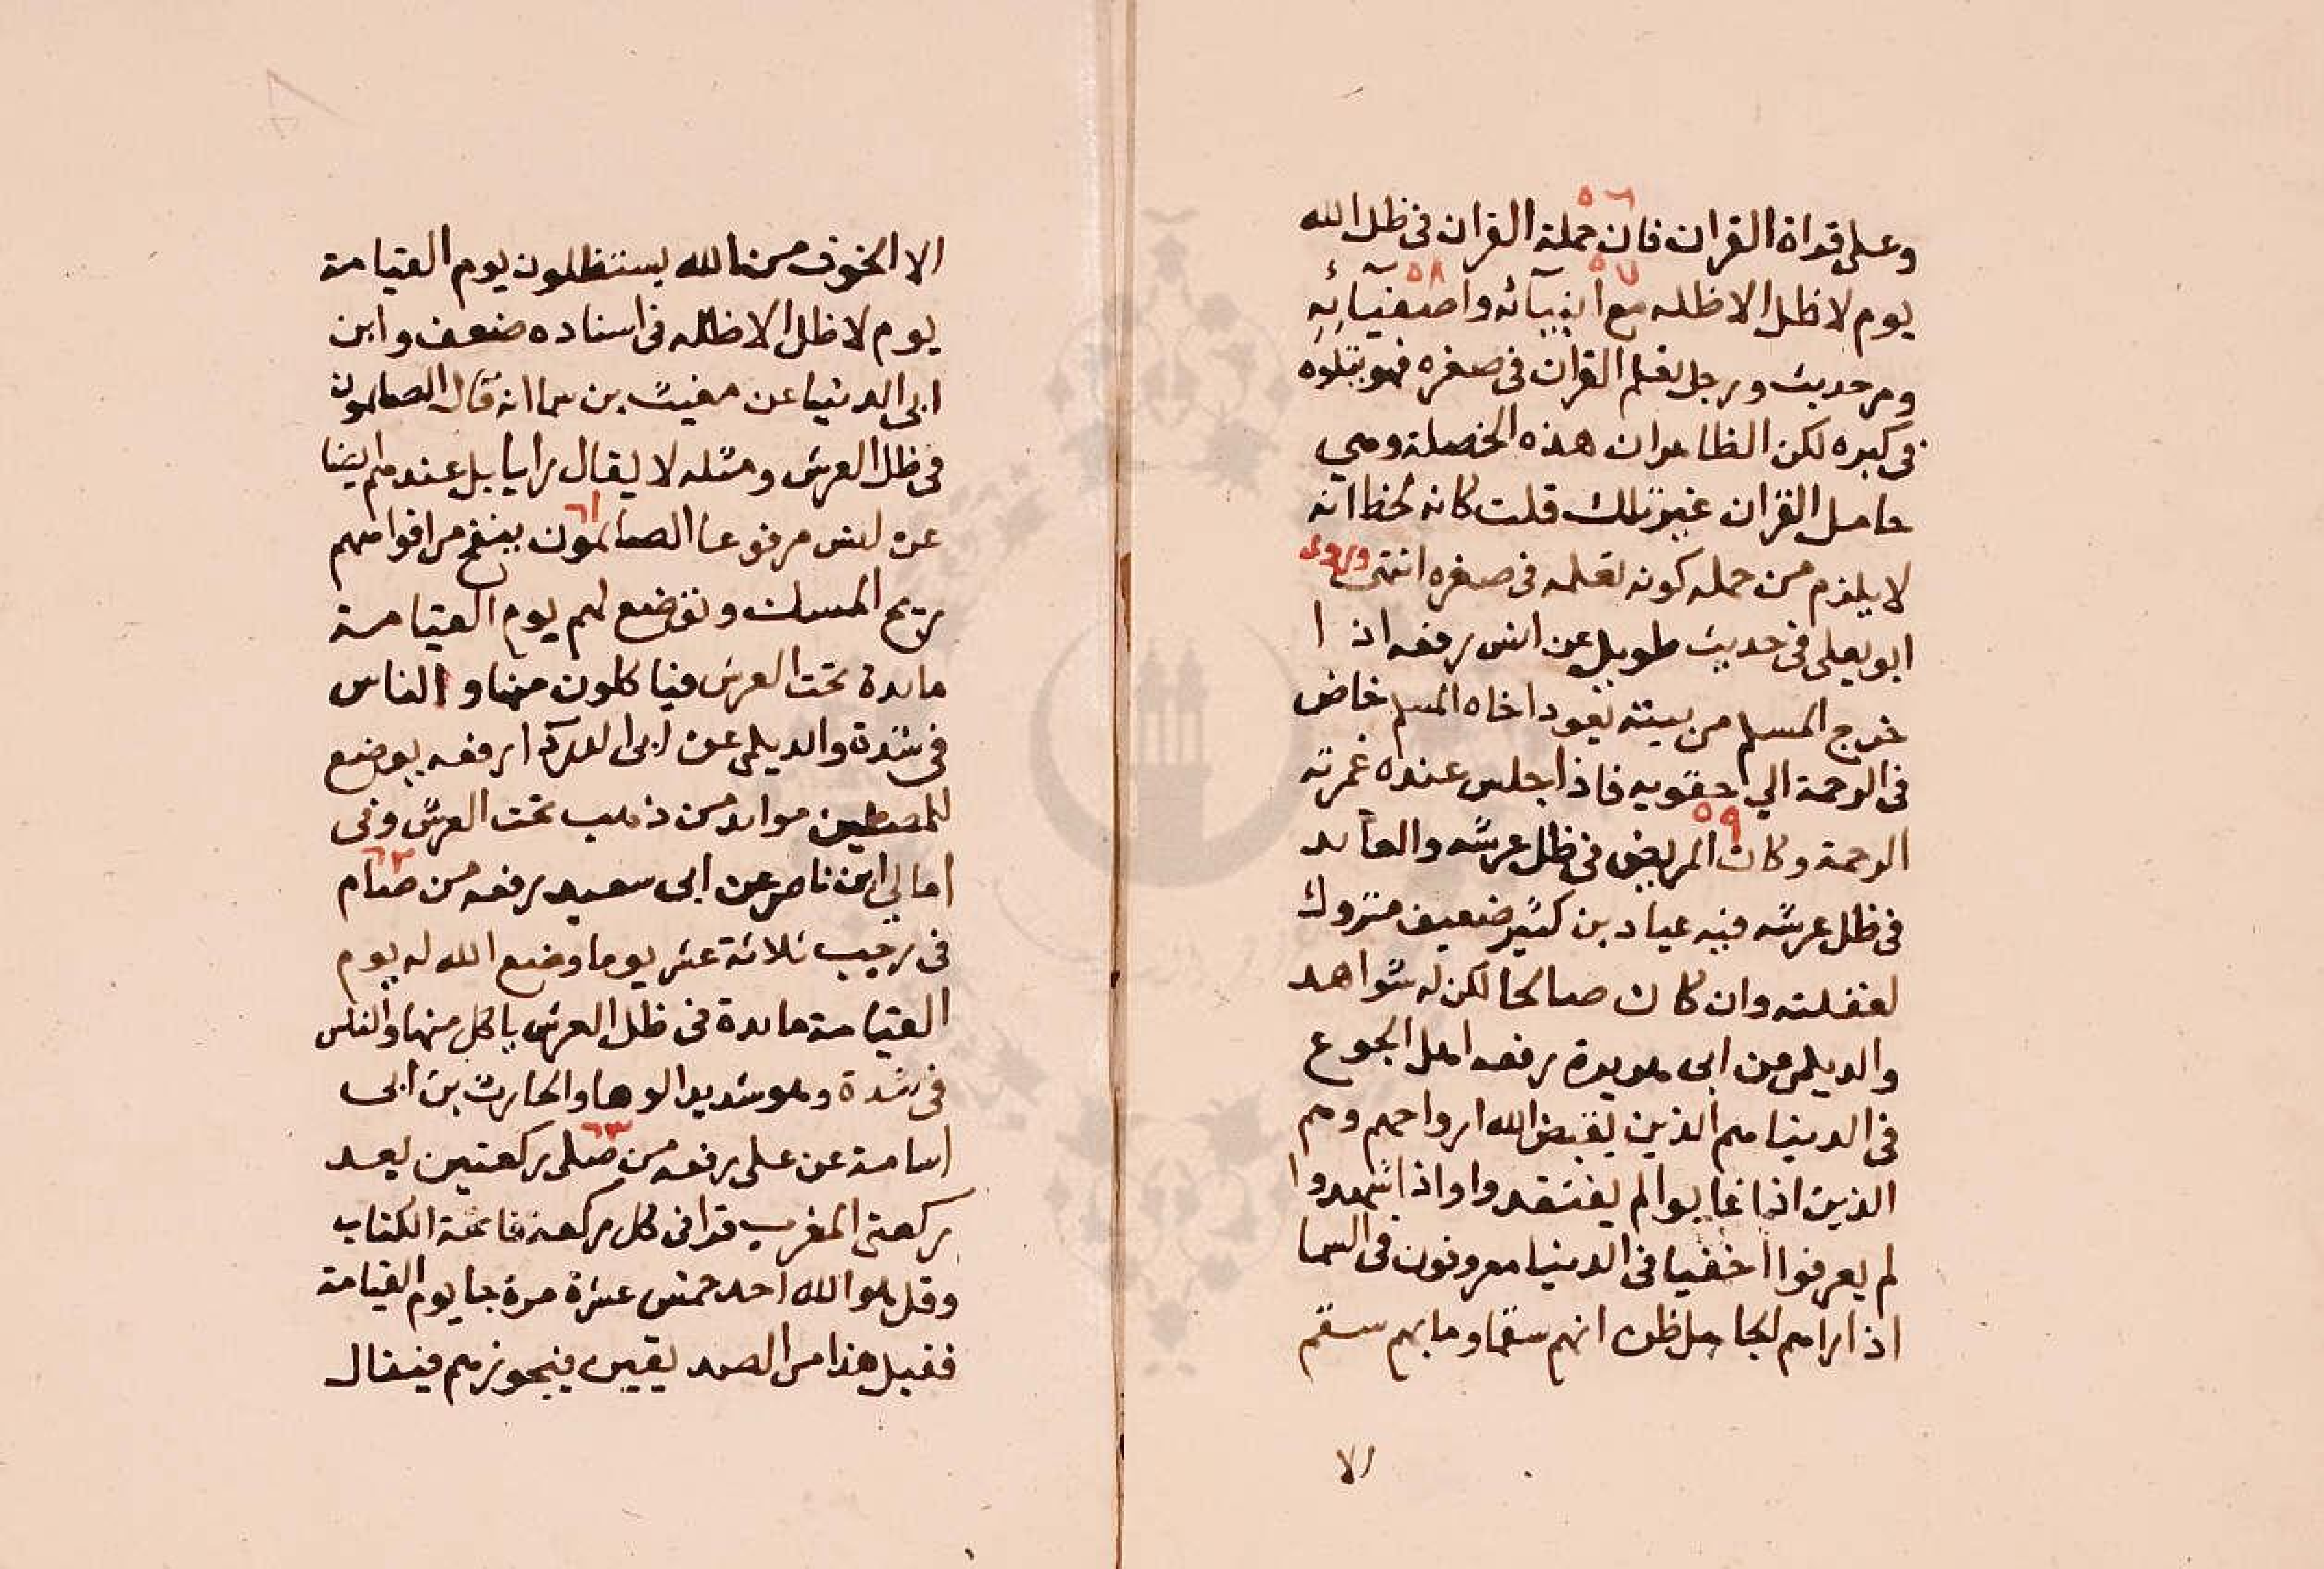 وعلى قراة القران فان حملة القران فى ظل الله
٥٦
يوم لا ظل الا ظله مع انبيآئه واصفيآئِهِ
٥٧ ٥٨
ومر حديث ورجل تعلم القران فى صغره فهو يتلوه
فى كبره لكن الظاهر ان هذه الخصلة وهي
حامل القران غير تلك قلت كانه لحظ انه
لا يلزم من حمله كونه تعلمه فى صغره انتهى وروى
ابو يعلى فى حديث طويل عن انس رفعه اذا
خرج المسلم من بيته يعود اخاه المسلم خاض
فى الرحمة الي حقويه فاذا جلس عنده غمرته
الرحمة وكان المريض فى ظل عرشه والعايد
٥٩
فى ظل عرشه فيه عباد بن كثير ضعيف متروك
لغفلته وان كان صالحا لكن له شواهد
والديلمى عن ابى هريرة رفعه اهل الجوع
فى الدنيا هم الذين يقبض الله ارواحهم وهم
الذين اذا غابوا لم يفتقدوا واذا شهدوا
لم يعرفوا اخفيا فى الدنيا معروفون فى السما
اذا راهم الجاهل ظن انهم سقما وما بهم سقم
الا
الا الخوف من الله يستظلون يوم القيامة
يوم لا ظل الا ظله فى اسناده ضعف وابن
ابى الدنيا عن مغيث بن سما انه قال الصايمون
فى ظل العرش ومثله لا يقال رايا بل عندهم ايضا
عن انس مرفوعا الصايمون ينفح من افواههم
٦١
ريح المسك وتوضع لهم يوم القيامة
مايدة تحت العرش فياكلون منها والناس
فى شدة والديلمى عن ابى الدردآ رفعه يوضع
للمصطين موايد من ذهب تحت العرش وفى
امالي ابن ناصر عن ابى سعيد رفعه من صام
٦٢
فى رجب ثلاثة عشر يوما وضع الله له يوم
القيامة مايدة فى ظل العرش ياكل منها والناس
فى شدة وهو شديد الوها والحارث بن ابى
اسامة عن على رفعه من صلى ركعتين بعد
٦٣
ركعتى المغرب قرا فى كل ركعة فاتحة الكتاب
وقل هو الله احد خمس عشرة مرة جا يوم القيامة